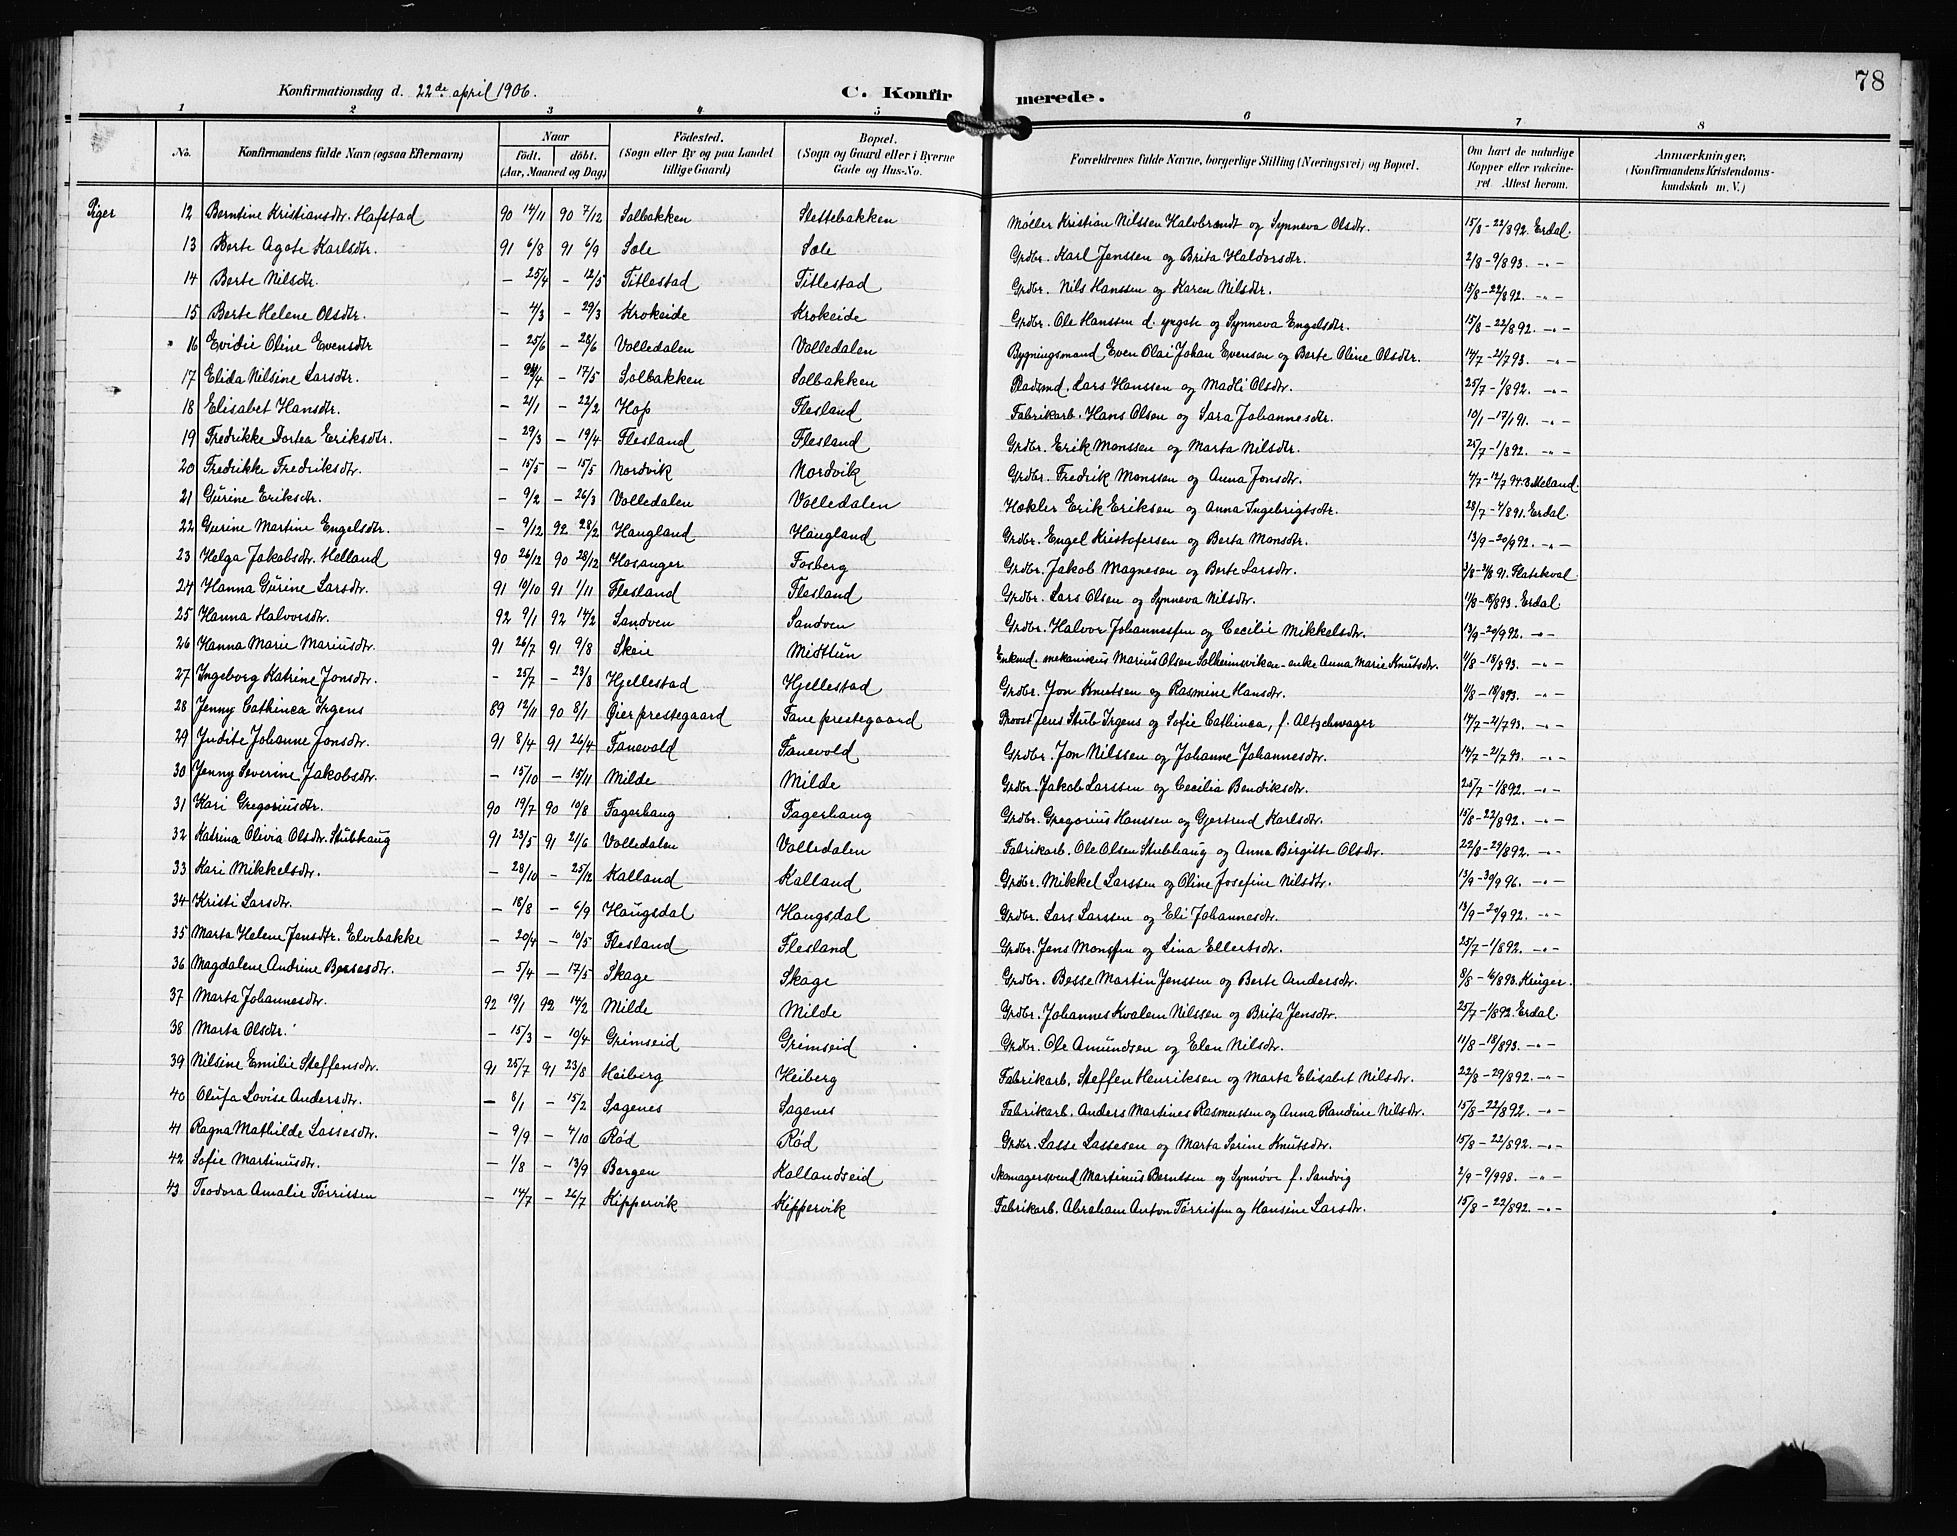 78
Konfirmationsdag d. 22de april 1906. C. Konfirmerede.
1 2 3 4 5 6 7 8
No. Konfirmandens fulde Navn (ogsaa Efternavn) Naar födt. döbt. (Aar, Maaned og Dag) Födested. (Sogn eller By og paa Landet tillige Gaard) Bopæl. (Sogn og Gaard eller i Byerne Gade og Hus-No. Forældrenes fulde Navne, borgerlige Stilling (Næringsvei) og Bopæl. Om havt de naturlige Kopper eller vakcineret. Attest herom. Anmærkninger. (Konfirmandens Kristendomskundskab m. V.)
Piger 12 Berntine Kristiansdtr. Hafstad 90 14/11 90 7/12 Solbakken Slettebakken Møller Kristian Nilssen Halvbrendt og Synneva Olsdtr. 15/8 - 22/892. Erdal
13 Berte Agate Karlsdtr. 91 6/8 91 6/9 Sole Sole Grdbr. Karl Jenssen og Brita Haldorsdtr. 2/8 - 9/893. -"-
14 Berte Nilsdtr. - 25/4 - 12/5 Titlestad Titlestad Grdbr. Nils Hanssen og Karen Nilsdtr. 15/8 - 22/892. -"-
15 Berte Helene Olsdtr. - 4/3 - 29/3 Krokeide Krokeide Grdbr. Ole Hanssen d. yngste og Synneva Engelsdtr. 15/8 - 22/892. -"-
16 Evidie Oline Evensdtr - 25/6 - 28/6 Volledalen Volledalen Bygningsmand Even Olai Johan Evensen og Berte Oline Olsdtr. 14/7 - 21/793. -"-
17 Elida Nilsine Larsdtr. - 24/4 - 17/5 Solbakken Solbakken Pladsmd. Lars Hanssen og Madli Olsdtr. 25/7 - 1/892. -"-
18 Elisabet Hansdtr. - 21/1 - 22/2 Hop Flesland Fabrikarb. Hans Olsen og Sara Johannesdtr. 10/1 - 17/191. -"-
19 Fredrikke Dortea Eriksdtr. - 29/3 - 19/4 Flesland Flesland Grdbr. Erik Monssen og Marta Nilsdtr. 25/7 - 1/892. -"-
20 Fredrikke Fredriksdtr. - 15/5 - 15/5 Nordvik Nordvik Grdbr. Fredrik Monssen og Anna Jonsdtr. 4/7 - 12/794. Meland
21 Gurine Eriksdtr. - 9/2 - 26/3 Volledalen Volledalen Hokler Erik Eriksen og Anna Ingebrigtsdtr. 28/7 - 4/891. Erdal
22 Gurine Martine Engelsdtr. - 9/12 92 28/2 Haugland Haugland Grdbr. Engel Kristofersen og Berta Monsdtr. 13/9 - 20/992. -"-
23 Helga Jakobsdtr. Helland 90 26/12 90 28/12 Hosanger Fosberg Grdbr. Jakob Magnesen og Berte Larsdtr. 91. Flatekval
24 Hanna Gurine Larsdtr. 91 10/10 91 1/11 Flesland Flesland Grdbr. Lars Olsen og Synneva Nilsdtr. 11/8 - 18/893. Erdal
25 Hanna Halvorsdtr. 92 9/1 92 14/2 Sandven Sandven Grdbr. Halvor Johannessen og Cecilie Mikkelsdtr. 13/9 - 20/992. -"-
26 Hanna Marie Mariusdtr. 91 26/7 91 9/8 Skeie Midttun Enkmd. mekanikus Marius Olsen Solheimsviken - enke Anna Marie Knutsdtr. 11/8 - 18/893. -"-
27 Ingeborg Katrine Jonsdtr. - 25/7 - 23/8 Hjellestad Hjellestad Grdbr. Jon Knutsen og Rasmine Hansdtr. 11/8 - 18/893. -"-
28 Jenny Cathinca Irgens 89 12/11 90 8/1 Øier prestegaard Fane prestegaard Provst Jens Stub Irgens og Sofie Cathinca, f. Altzchwager 14/7 - 21/793. -"-
29 Judite Johanne Jonsdtr. 91 8/4 91 26/4 Fanevold Fanevold Grdbr. Jon Nilssen og Johanne Johannesdtr. 14/7 - 21/793. -"-
30 Jenny Severine Jakobsdtr. - 15/10 - 15/11 Milde Milde Grdbr. Jakob Larssen og Cecilia Bendiksdtr. 25/7 - 1/892. -"-
31 Kari Gregoriusdtr. 90 19/7 90 10/8 Fagerhaug Fagerhaug Grdbr. Gregorius Hanssen og Gjertrud Karlsdtr. 15/8 - 22/892. -"-
32 Katrina Olivia Olsdtr. Stubhaug 91 23/5 91 21/6 Volledalen Volledalen Fabrikarb. Ole Olsen Stubhaug og Anna Birgitte Olsdtr. 22/8 - 29/892. -"-
33 Kari Mikkelsdtr. - 28/10 - 25/12 Kalland Kalland Grdbr. Mikkel Larssen og Oline Josefine Nilsdtr. 13/9 - 30/996. -"-
34 Kristi Larsdtr. - 18/8 - 6/9 Haugsdal Haugsdal Grdbr. Lars Larssen og Eli Johannesdtr. 13/9 - 20/992. -"-
35 Marta Helene Jensdtr. Elvebakke - 20/4 - 10/5 Flesland Flesland Grdbr. Jens Monssen og Lina Ellertsdtr. 25/7 - 1/892. -"-
36 Magdalene Andrine Bessesdtr. - 5/4 - 17/5 Skage Skage Grdbr. Besse Martin Jenssen og Berte Andersdtr. 8/8 - 16/893. Krüger.
37 Marta Johannesdtr. 92 19/1 92 14/2 Milde Milde Grdbr. Johannes Kvalem Nilssen og Brita Jensdtr. 25/7 - 1/892. Erdal
38 Marta Olsdtr. - 15/3 - 10/4 Grimseid Grimseid Grdbr. Ole Amundsen og Elen Nilsdtr. 11/8 - 18/893. -"-
39 Nilsine Emilie Steffensdtr. 91 25/7 91 23/8 Heiberg Heiberg Fabrikarb. Steffen Henriksen og Marta Elisabet Nilsdtr. 22/8 - 29/892. -"-
40 Olufa Lovise Andersdtr. - 8/1 - 15/2 Sagenes Sagenes Fabrikarb. Anders Martines Rasmussen og Anna Randine Nilsdtr. 15/8 - 22/892. -"-
41 Ragna Mathilde Lassesdtr. - 9/9 - 4/10 Rød Rød Grdbr. Lasse Lassesen og Marta Serine Knutsdtr. 15/8 - 22/892. -"-
42 Sofie Martinusdtr. - 1/8 - 13/9 Bergen Kallandseid Skomagersvend Martinus Berntsen og Synnøve f. Sandvig 2/9 - 9/998. -"-
43 Teodora Amalie Tørrissen - 14/7 - 26/7 Kippervik Kippervik Fabrikarb. Abraham Anton Tørrissen og Hansine Larsdtr. 15/8 - 22/892. -"-